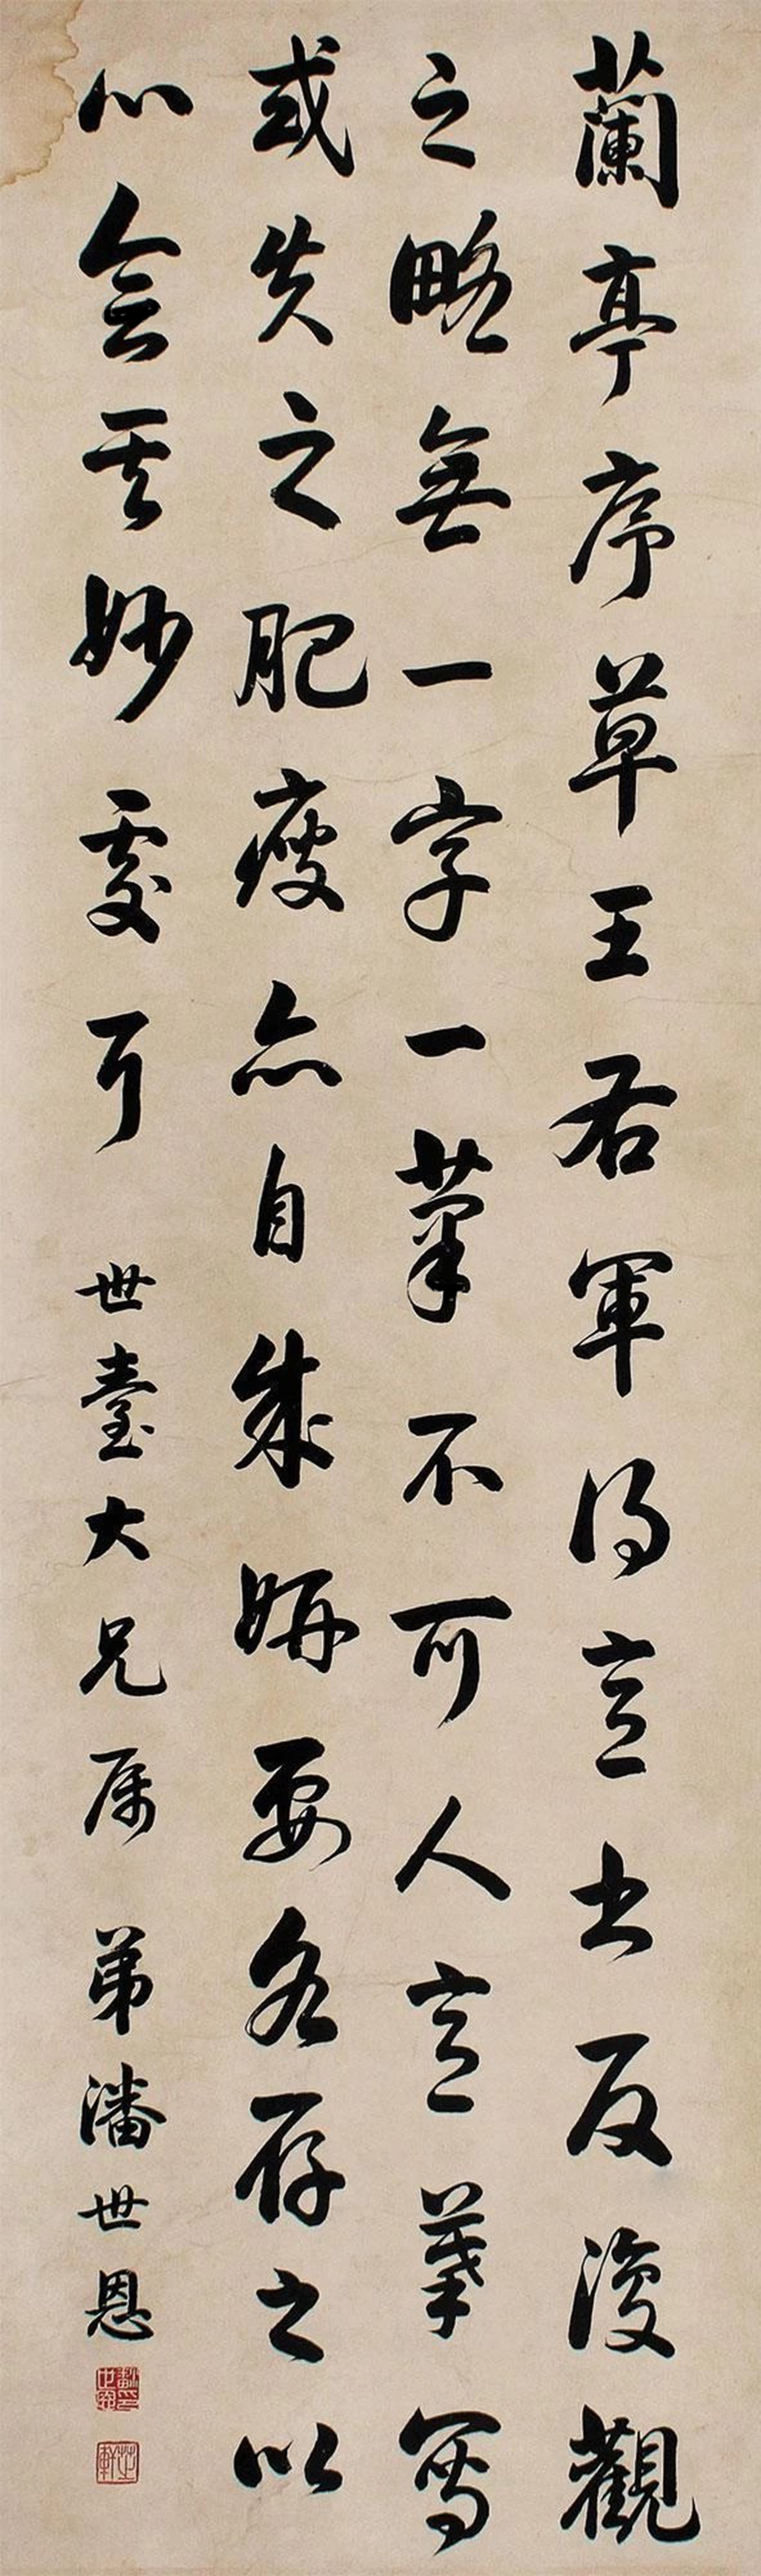 蘭亭序草王右軍得意書反復觀
之略無一字一筆不可人意摹寫
或失之肥瘦亦自成妍要各存之以
心會其妙處耳 世臺大兄属 弟潘世恩
潘世恩印
芝軒